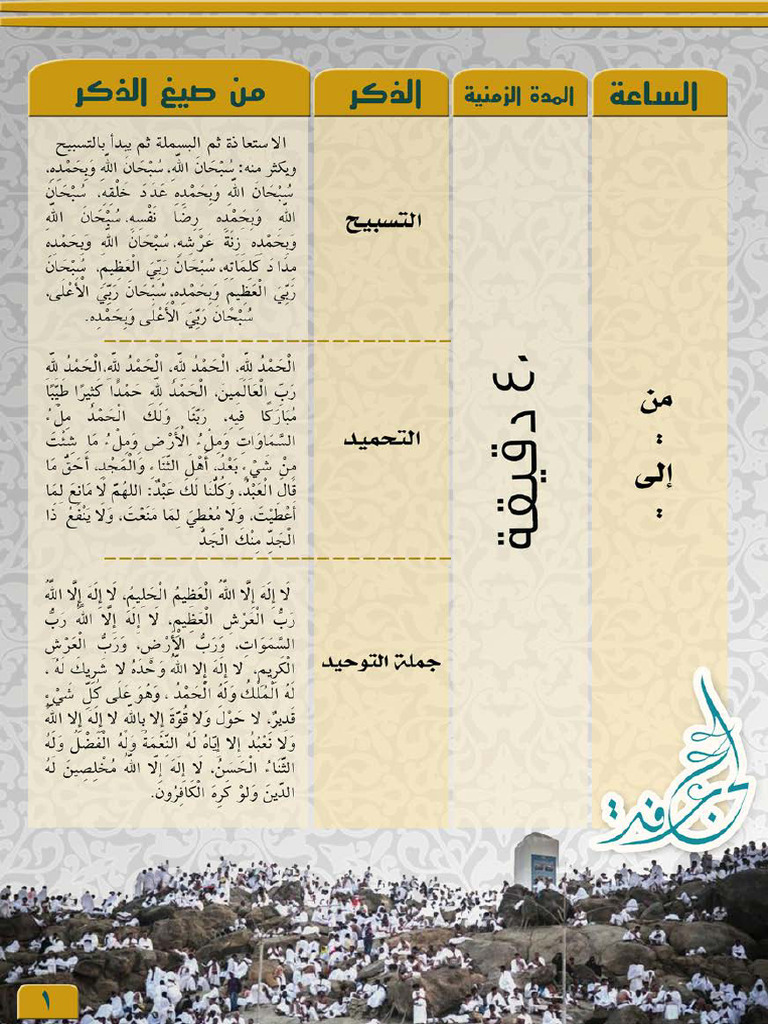 الساعة
المدة الزمنية
الذكر
من صيغ الذكر
من
:
إلى
:
٤٠ دقيقة
التسبيح
الاستعاذة ثم البسملة ثم يبدأ بالتسبيح
ويكثر منه: سُبْحَانَ اللَّهِ، سُبْحَانَ اللَّهِ وَبِحَمْدِهِ،
سُبْحَانَ اللَّهِ وَبِحَمْدِهِ عَدَدَ خَلْقِهِ، سُبْحَانَ
اللَّهِ وَبِحَمْدِهِ رِضَا نَفْسِهِ، سُبْحَانَ اللَّهِ
وَبِحَمْدِهِ زِنَةَ عَرْشِهِ، سُبْحَانَ اللَّهِ وَبِحَمْدِهِ
مِدَادَ كَلِمَاتِهِ، سُبْحَانَ رَبِّيَ الْعَظِيمِ، سُبْحَانَ
رَبِّيَ الْعَظِيمِ وَبِحَمْدِهِ، سُبْحَانَ رَبِّيَ الْأَعْلَى،
سُبْحَانَ رَبِّيَ الْأَعْلَى وَبِحَمْدِهِ.
التحميد
الْحَمْدُ لِلَّهِ، الْحَمْدُ لِلَّهِ، الْحَمْدُ لِلَّهِ، الْحَمْدُ لِلَّهِ
رَبِّ الْعَالَمِينَ، الْحَمْدُ لِلَّهِ حَمْدًا كَثِيرًا طَيِّبًا
مُبَارَكًا فِيهِ، رَبَّنَا وَلَكَ الْحَمْدُ مِلْءُ
السَّمَاوَاتِ وَمِلْءُ الْأَرْضِ وَمِلْءُ مَا شِئْتَ
مِنْ شَيْءٍ بَعْدُ، أَهْلَ الثَّنَاءِ وَالْمَجْدِ، أَحَقُّ مَا
قَالَ الْعَبْدُ، وَكُلُّنَا لَكَ عَبْدٌ: اللهُمَّ لَا مَانِعَ لِمَا
أَعْطَيْتَ، وَلَا مُعْطِيَ لِمَا مَنَعْتَ، وَلَا يَنْفَعُ ذَا
الْجَدِّ مِنْكَ الْجَدُّ
جملة التوحيد
لَا إِلَهَ إِلَّا اللَّهُ الْعَظِيمُ الْحَلِيمُ، لَا إِلَهَ إِلَّا اللَّهُ
رَبُّ الْعَرْشِ الْعَظِيمِ، لَا إِلَهَ إِلَّا اللَّهُ رَبُّ
السَّمَوَاتِ، وَرَبُّ الْأَرْضِ، وَرَبُّ الْعَرْشِ
الْكَرِيمِ، لَا إِلَهَ إِلَّا اللَّهُ وَحْدَهُ لَا شَرِيكَ لَهُ،
لَهُ الْمُلْكُ وَلَهُ الْحَمْدُ، وَهُوَ عَلَى كُلِّ شَيْءٍ
قَدِيرٌ، لَا حَوْلَ وَلَا قُوَّةَ إِلَّا بِاللَّهِ لَا إِلَهَ إِلَّا اللَّهُ
وَلَا نَعْبُدُ إِلَّا إِيَّاهُ لَهُ النِّعْمَةُ وَلَهُ الْفَضْلُ وَلَهُ
الثَّنَاءُ الْحَسَنُ، لَا إِلَهَ إِلَّا اللَّهُ مُخْلِصِينَ لَهُ
الدِّينَ وَلَوْ كَرِهَ الْكَافِرُونَ.
الحج عرفة
١